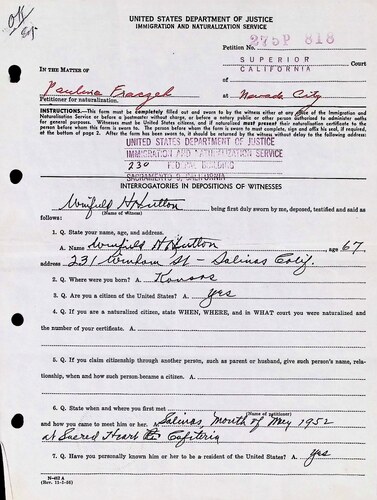 OK
UNITED STATES DEPARTMENT OF JUSTICE
IMMIGRATION AND NATURALIZATION SERVICE
Petition No. 275P 818
SUPERIOR Court
IN THE MATTER OF of CALIFORNIA
Paulina Fraczek
Petitioner for naturalization. at Nevada City
INSTRUCTIONS.—This form must be completely filled out and sworn to by the witness either at any office of the Immigration and
Naturalization Service or before a postmaster without charge, or before a notary public or other person authorized to administer oaths
for general purposes. Witnesses must be United States citizens, and if naturalized must present their naturalization certificate to the
person before whom this form is sworn to. The person before whom the form is sworn to must complete, sign and affix his seal, if required,
at the bottom of page 2. After the form has been sworn to, it should be returned by the witness without delay to the following address:
UNITED STATES DEPARTMENT OF JUSTICE
IMMIGRATION AND NATURALIZATION SERVICE
230 BUILDING
SACRAMENTO 9, CALIFORNIA
INTERROGATORIES IN DEPOSITIONS OF WITNESSES
Winfield H Hutton being first duly sworn by me, deposed, testified and said as
(Name of witness)
follows:
1. Q. State your name, age, and address.
A. Name Winfield H Hutton age 67.
address 231 St - Salinas Calif.
2. Q. Where were you born? A. Kansas
3. Q. Are you a citizen of the United States? A. yes
4. Q. If you are a naturalized citizen, state WHEN, WHERE, and in WHAT court you were naturalized and
the number of your certificate. A.
5. Q. If you claim citizenship through another person, such as parent or husband, give such person's name, rela-
tionship, when and how such person became a citizen. A.
6. Q. State when and where you first met
(Name of petitioner)
and how you came to meet him or her. A. Salinas, month of May 1952
at Sacred Heart Cafeteria
7. Q. Have you personally known him or her to be a resident of the United States? A. Yes
N-462 A